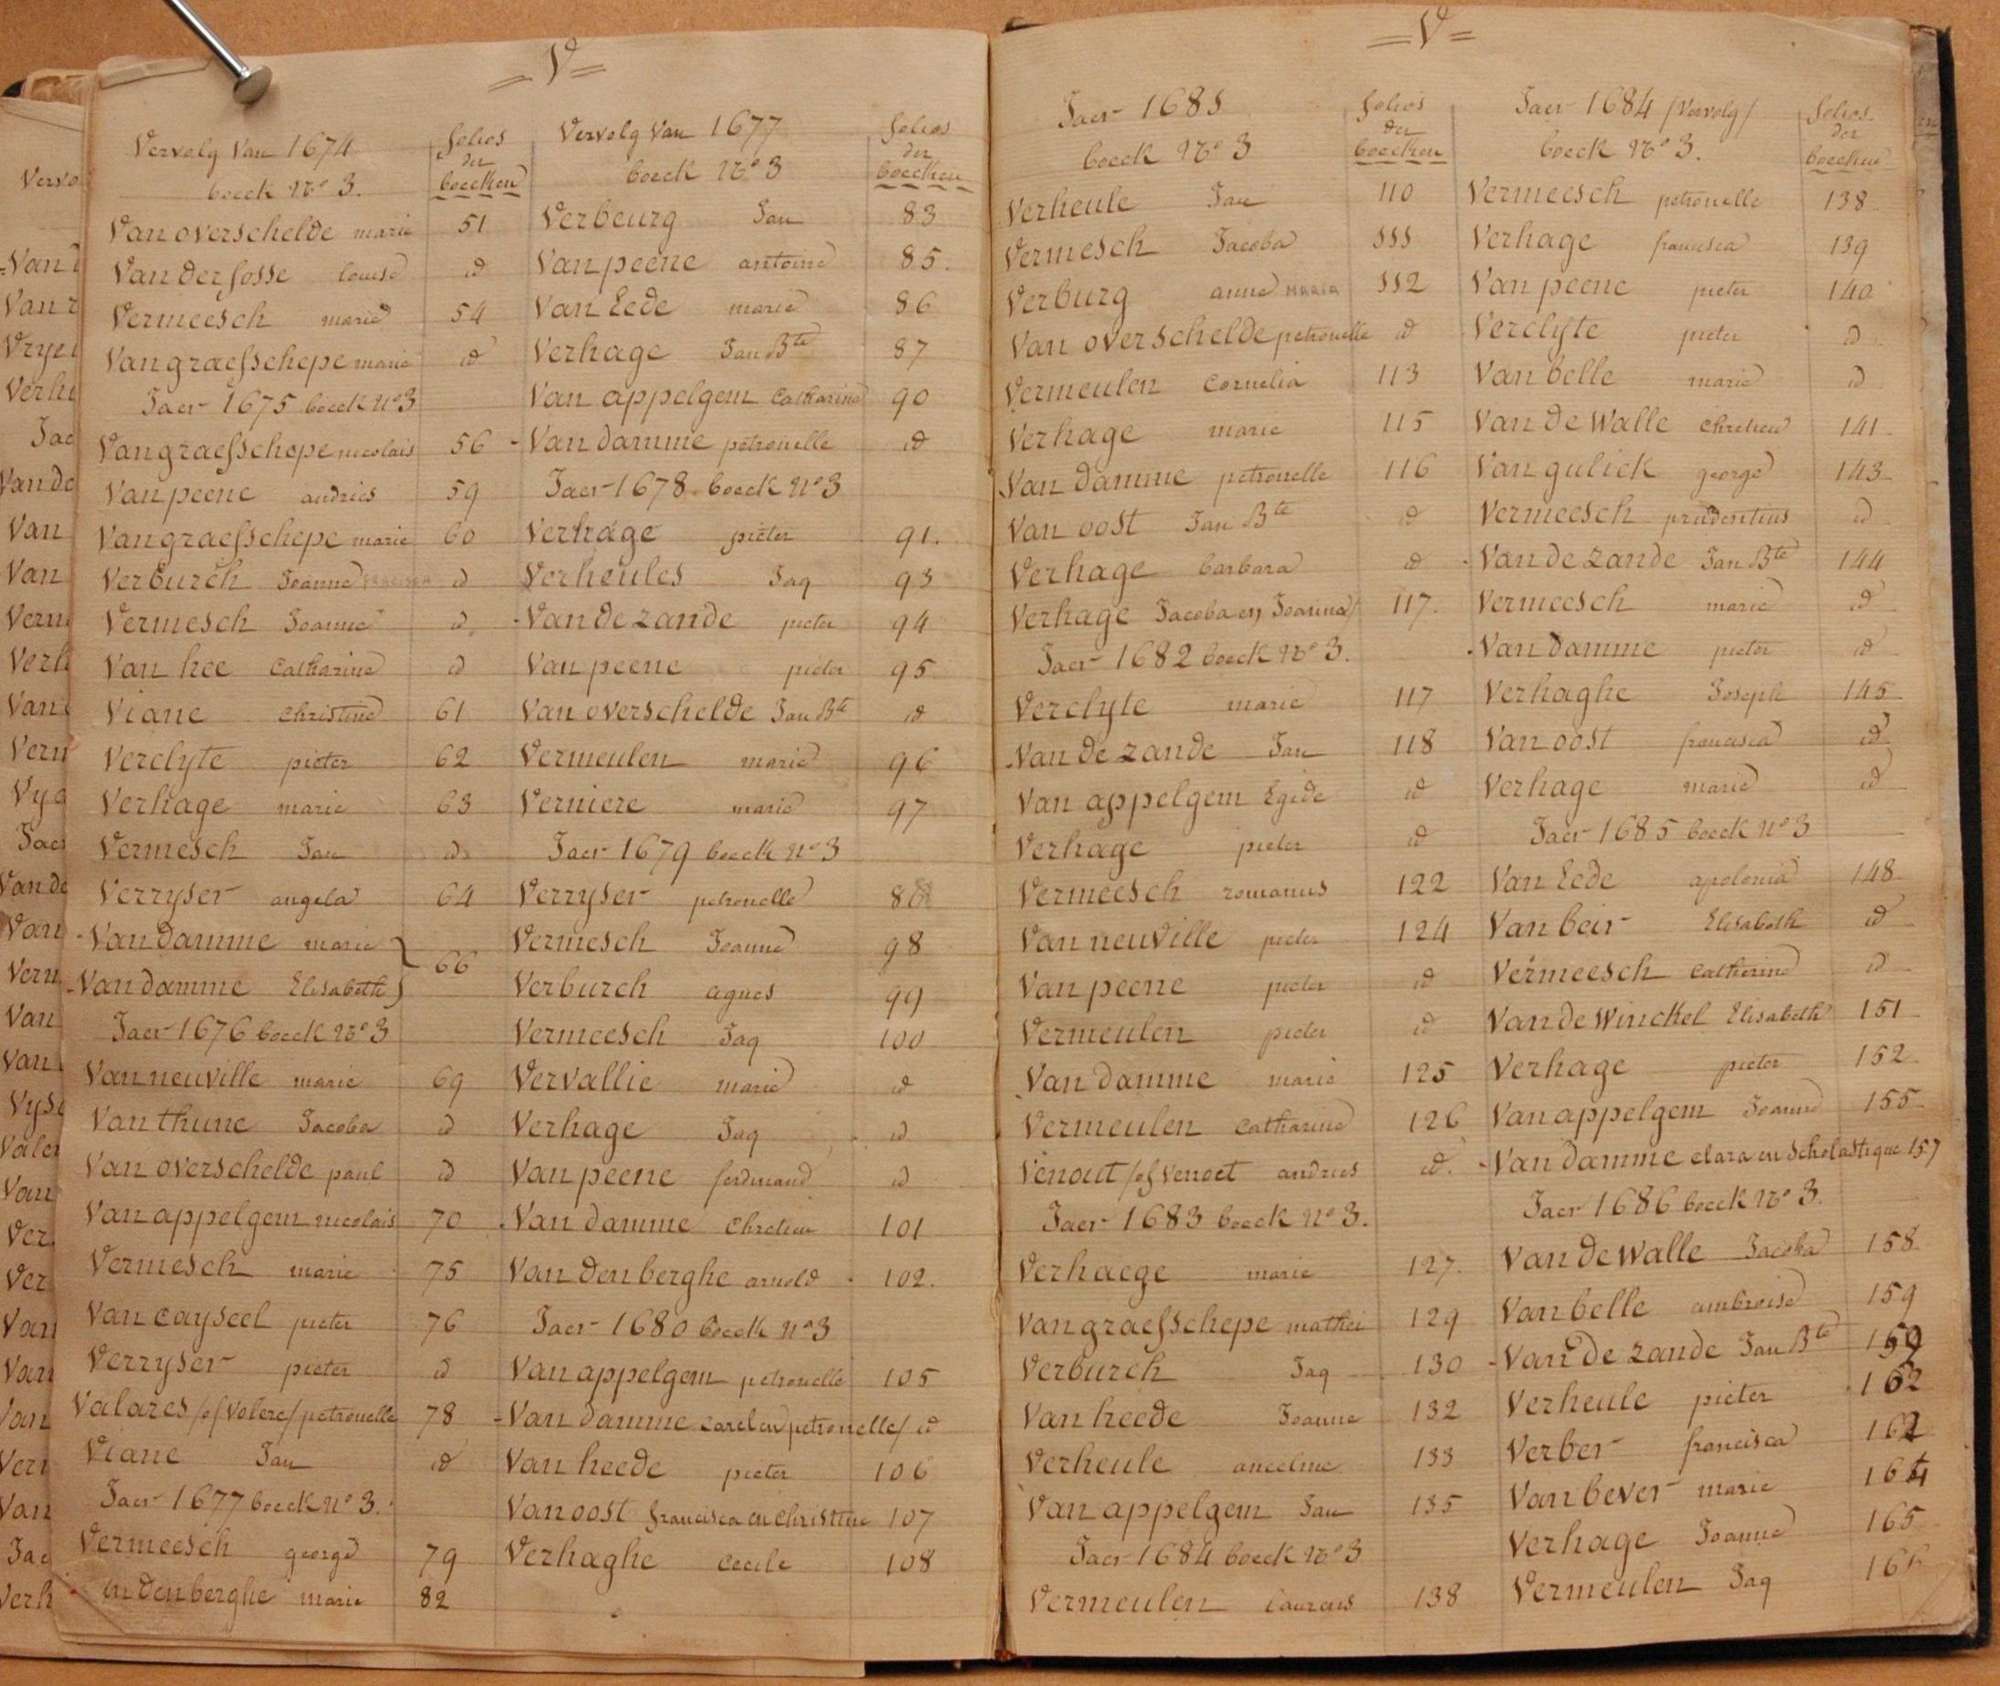 =V=
Vervolg Van 1674
boeck N.º 3.
folios
der
boecken
Van overschelde marie 51
Van der fosse louise id
Vermeesch marie 54
Van graefschepe marie id
Jaer 1675 boeck Nº 3
Van graefschepe nicolais 56
Van peene andries 59
Van graefschepe marie 60
Verburch Joanne id
Vermesch Joanne id
Van hee Catharine id
Viane Christine 61
Verclyte pieter 62
Verhage marie 63
Vermesch Jan id
Verryser angela 64
-Van damme marie }
66
-Van damme Elisabeth }
Jaer 1676 boeck Nº 3
Van neuville marie 69
Van thune Jacoba id
Van overschelde paul id
Van appelgem nicolais 70
Vermesch marie 75
Van cayseel pieter 76
Verryser pieter id
Valares /of Volere/ petronelle 78
Viane Jan id
Jaer 1677 boeck Nº 3.
Vermeesch george 79
denberghe marie 82
Vervolg Van 1677
boeck Nº 3
folios
der
boecken
Verbeurg Jan 83
Van peene antoine 85.
Van Eede marie 86
Verhage Jan Bte 87
Van appelgem Catharine 90
-Van damme petronelle id
Jaer 1678 boeck Nº 3
Verhage pieter 91.
Verheules Jaq 93
-Van de zande pieter 94
Van peene pieter 95
Van overschelde Jan Bte id
Vermeulen marie 96
Verniere marie 97
Jaer 1679 boeck Nº 3
Verryser petronelle
Vermesch Joanne 98
Verburch agnes 99
Vermeesch Jaq 100
Vervallie marie id
Verhage Jaq id
Van peene ferdinand id
-Van damme Chretien 101
Van den berghe arnold 102.
Jaer 1680 boeck Nº 3
Van appelgem petronelle 105
-Van damme carel en petronelle/ id
Van heede pieter 106
Van oost francisca en christine 107
Verhaghe Cecile 108
=V=
Jaer 1681
boeck Nº 3
folios
der
boecken
Verheule Jan 110
Vermesch Jacoba 111
Verburg anne maria 112
Van overschelde petronelle id
Vermeulen Cornelia 113
Verhage marie 115
-Van damme petronelle 116
Van oost Jan Bte id
Verhage barbara id
Verhage Jacoba en Joanna/ 117.
Jaer 1682 boeck Nº 3.
Verclyte marie 117
-Van de zande Jan 118
Van appelgem Egide id
Verhage pieter id
Vermeesch romanus 122
Van neuville pieter 124
Van peene pieter id
Vermeulen pieter id
-Van damme marie 125
Vermeulen Catharine 126
Venout /of Venoet andries id.
Jaer 1683 boeck Nº 3.
Verhaege marie 127.
Van graefschepe mathei 129
Verburch Jaq 130
Van heede Joanne 132
Verheule anceline 133
Van appelgem Jan 135
Jaer 1684 boeck Nº 3
Vermeulen Laurens 138
Jaer 1684 /Vervolg/
boeck Nº 3.
folios
der
boecken
Vermeesch petronelle 138
Verhage francisca 139
Van peene pieter 140
Verclyte pieter id
Van belle marie id
Van de Walle Chretien 141
Van gulick george 143
Vermeesch prudentius id
-Van de zande Jan Bte 144
Vermeesch marie id
-Van damme pieter id
Verhaghe Joseph 145
Van oost francisca id
Verhage marie id
Jaer 1685 boeck Nº 3
Van Eede apolonia 148
Van beir Elisabeth id
Vermeesch Catherine id
Van de Winckel Elisabeth 151
Verhage pieter 152
Van appelgem Joanne 155
-Van damme clara en scholastique 157
Jaer 1686 boeck Nº 3.
Van de Walle Jacoba 158
Van belle ambroise 159
-Van de zande Jan Bte 159
Verheule pieter 162
Verber francisca 162
Van bever marie 164
Verhage Joanne 165
Vermeulen Jaq